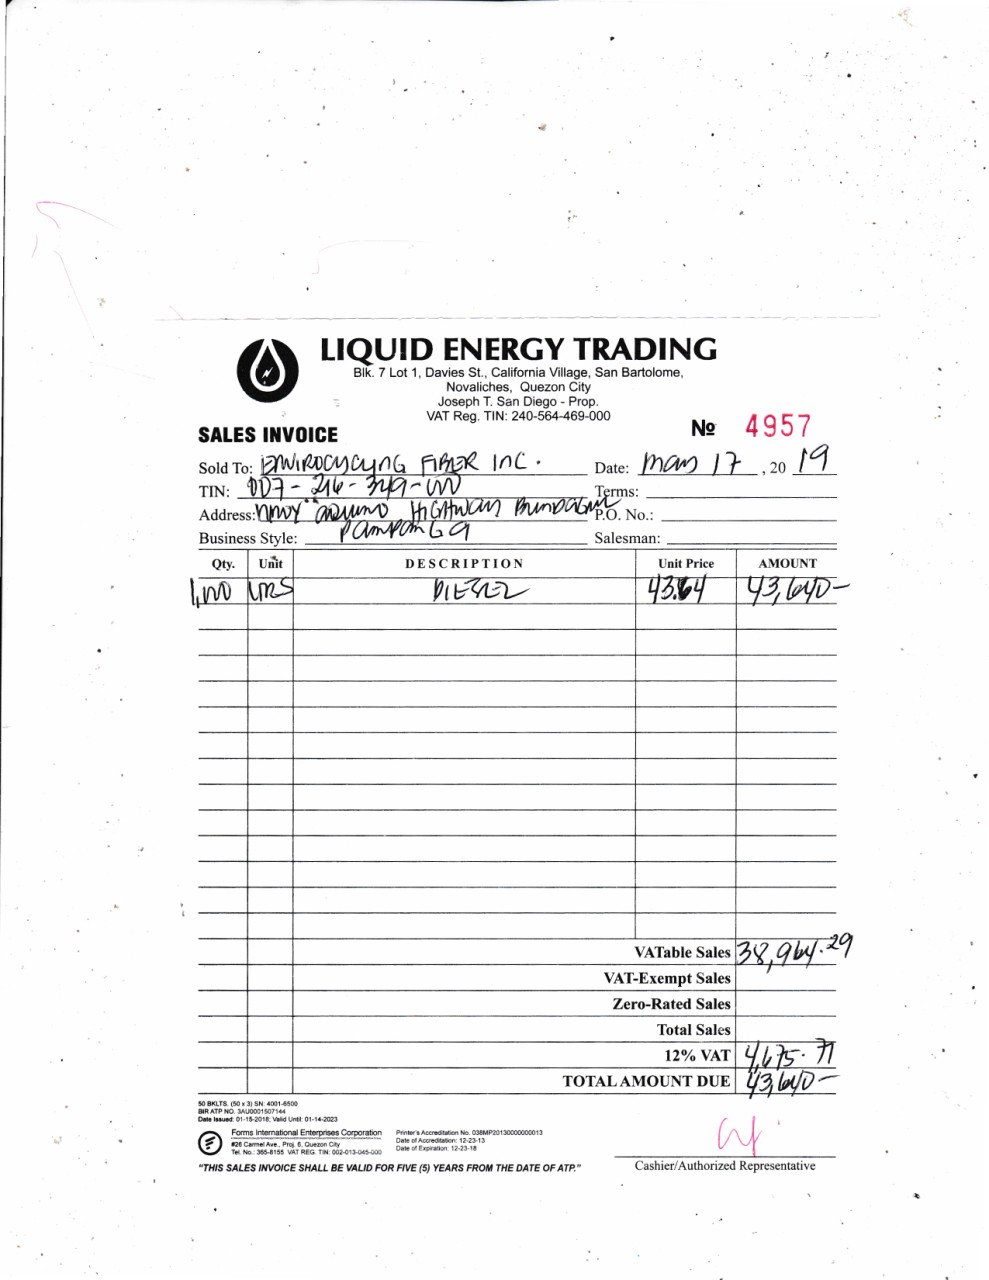 LIQUID ENERGY TRADING
Blk. 7 Lot 1, Davies St., California Village, San Bartolome,
Novaliches, Quezon City
Joseph T. San Diego - Prop.
VAT Reg. TIN: 240-564-469-000
SALES INVOICE
№ 4957
Sold To: ENVIROCYCLING FIBER INC. Date: May 17, 2019
TIN: 007-216-349-000 Terms:
Address: HIGHWAY P.O. No.:
Business Style: PAMPANGA Salesman:
Qty. Unit DESCRIPTION Unit Price AMOUNT
1,000 LTRS DIESEL 43.64 43,640-
VATable Sales 38,964.29
VAT-Exempt Sales
Zero-Rated Sales
Total Sales
12% VAT 4,675.71
TOTAL AMOUNT DUE 43,640-
50 BKLTS. (50 x 3) SN: 4001-6500
BIR ATP NO. 3AU0001507144
Date Issued: 01-15-2018; Valid Until: 01-14-2023
Forms International Enterprises Corporation
#26 Carmel Ave., Proj. 6, Quezon City
Tel. No.: 365-8155 VAT REG. TIN: 002-013-045-000
Printer's Accreditation No. 038MP20130000000013
Date of Accreditation: 12-23-13
Date of Expiration: 12-23-18
"THIS SALES INVOICE SHALL BE VALID FOR FIVE (5) YEARS FROM THE DATE OF ATP."
Cashier/Authorized Representative